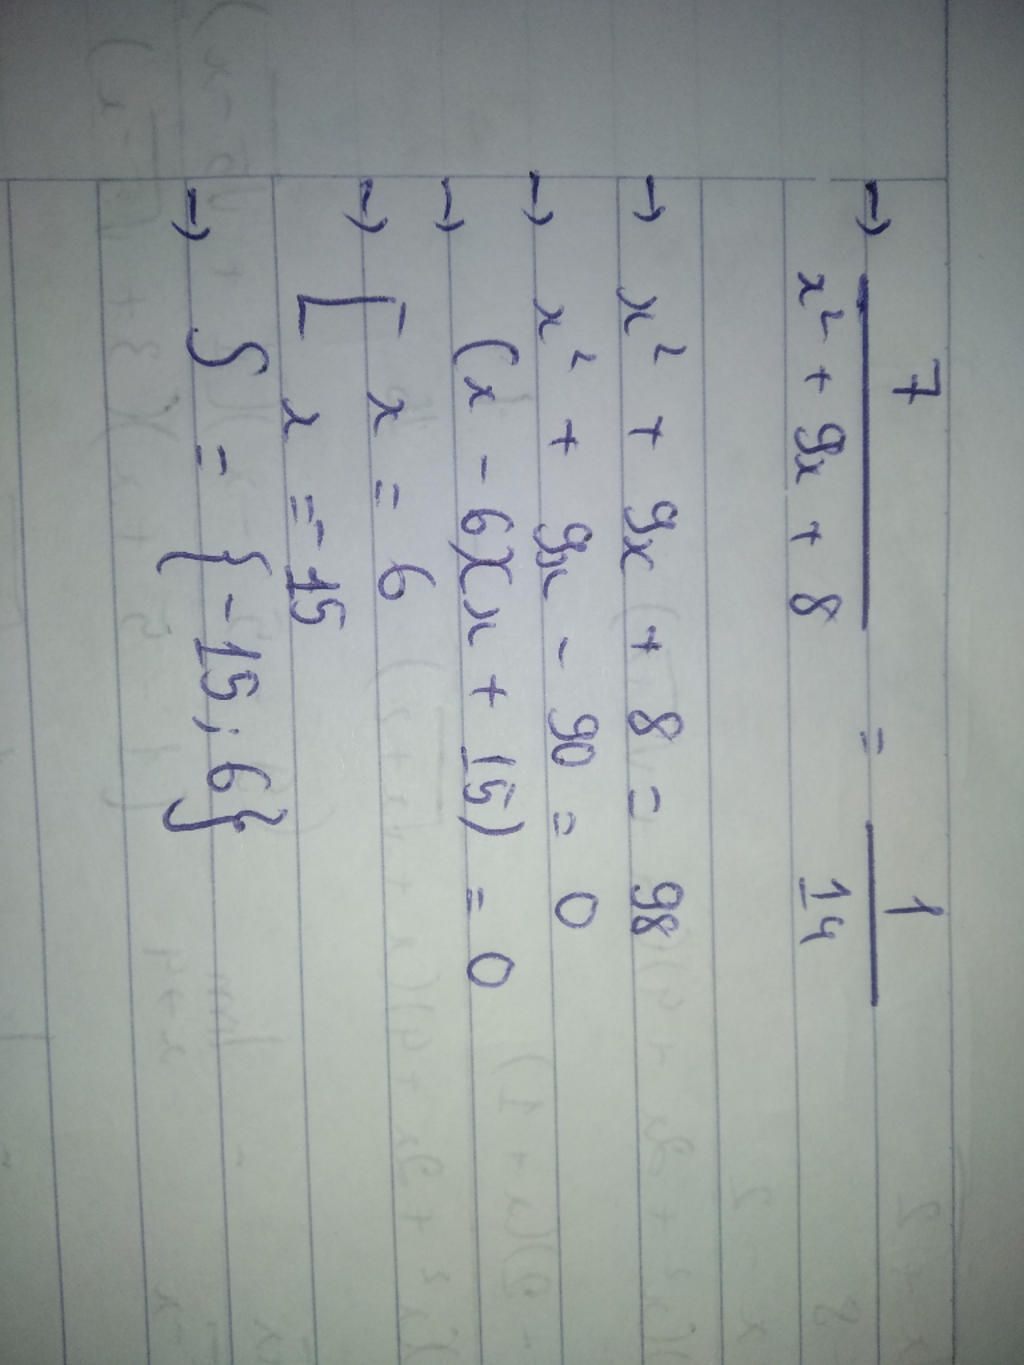 → 7/(x² + 9x + 8) = 1/14
→ x² + 9x + 8 = 98
→ x² + 9x - 90 = 0
→ (x - 6)(x + 15) = 0
→ [ x = 6
x = -15
→ S = {-15; 6}